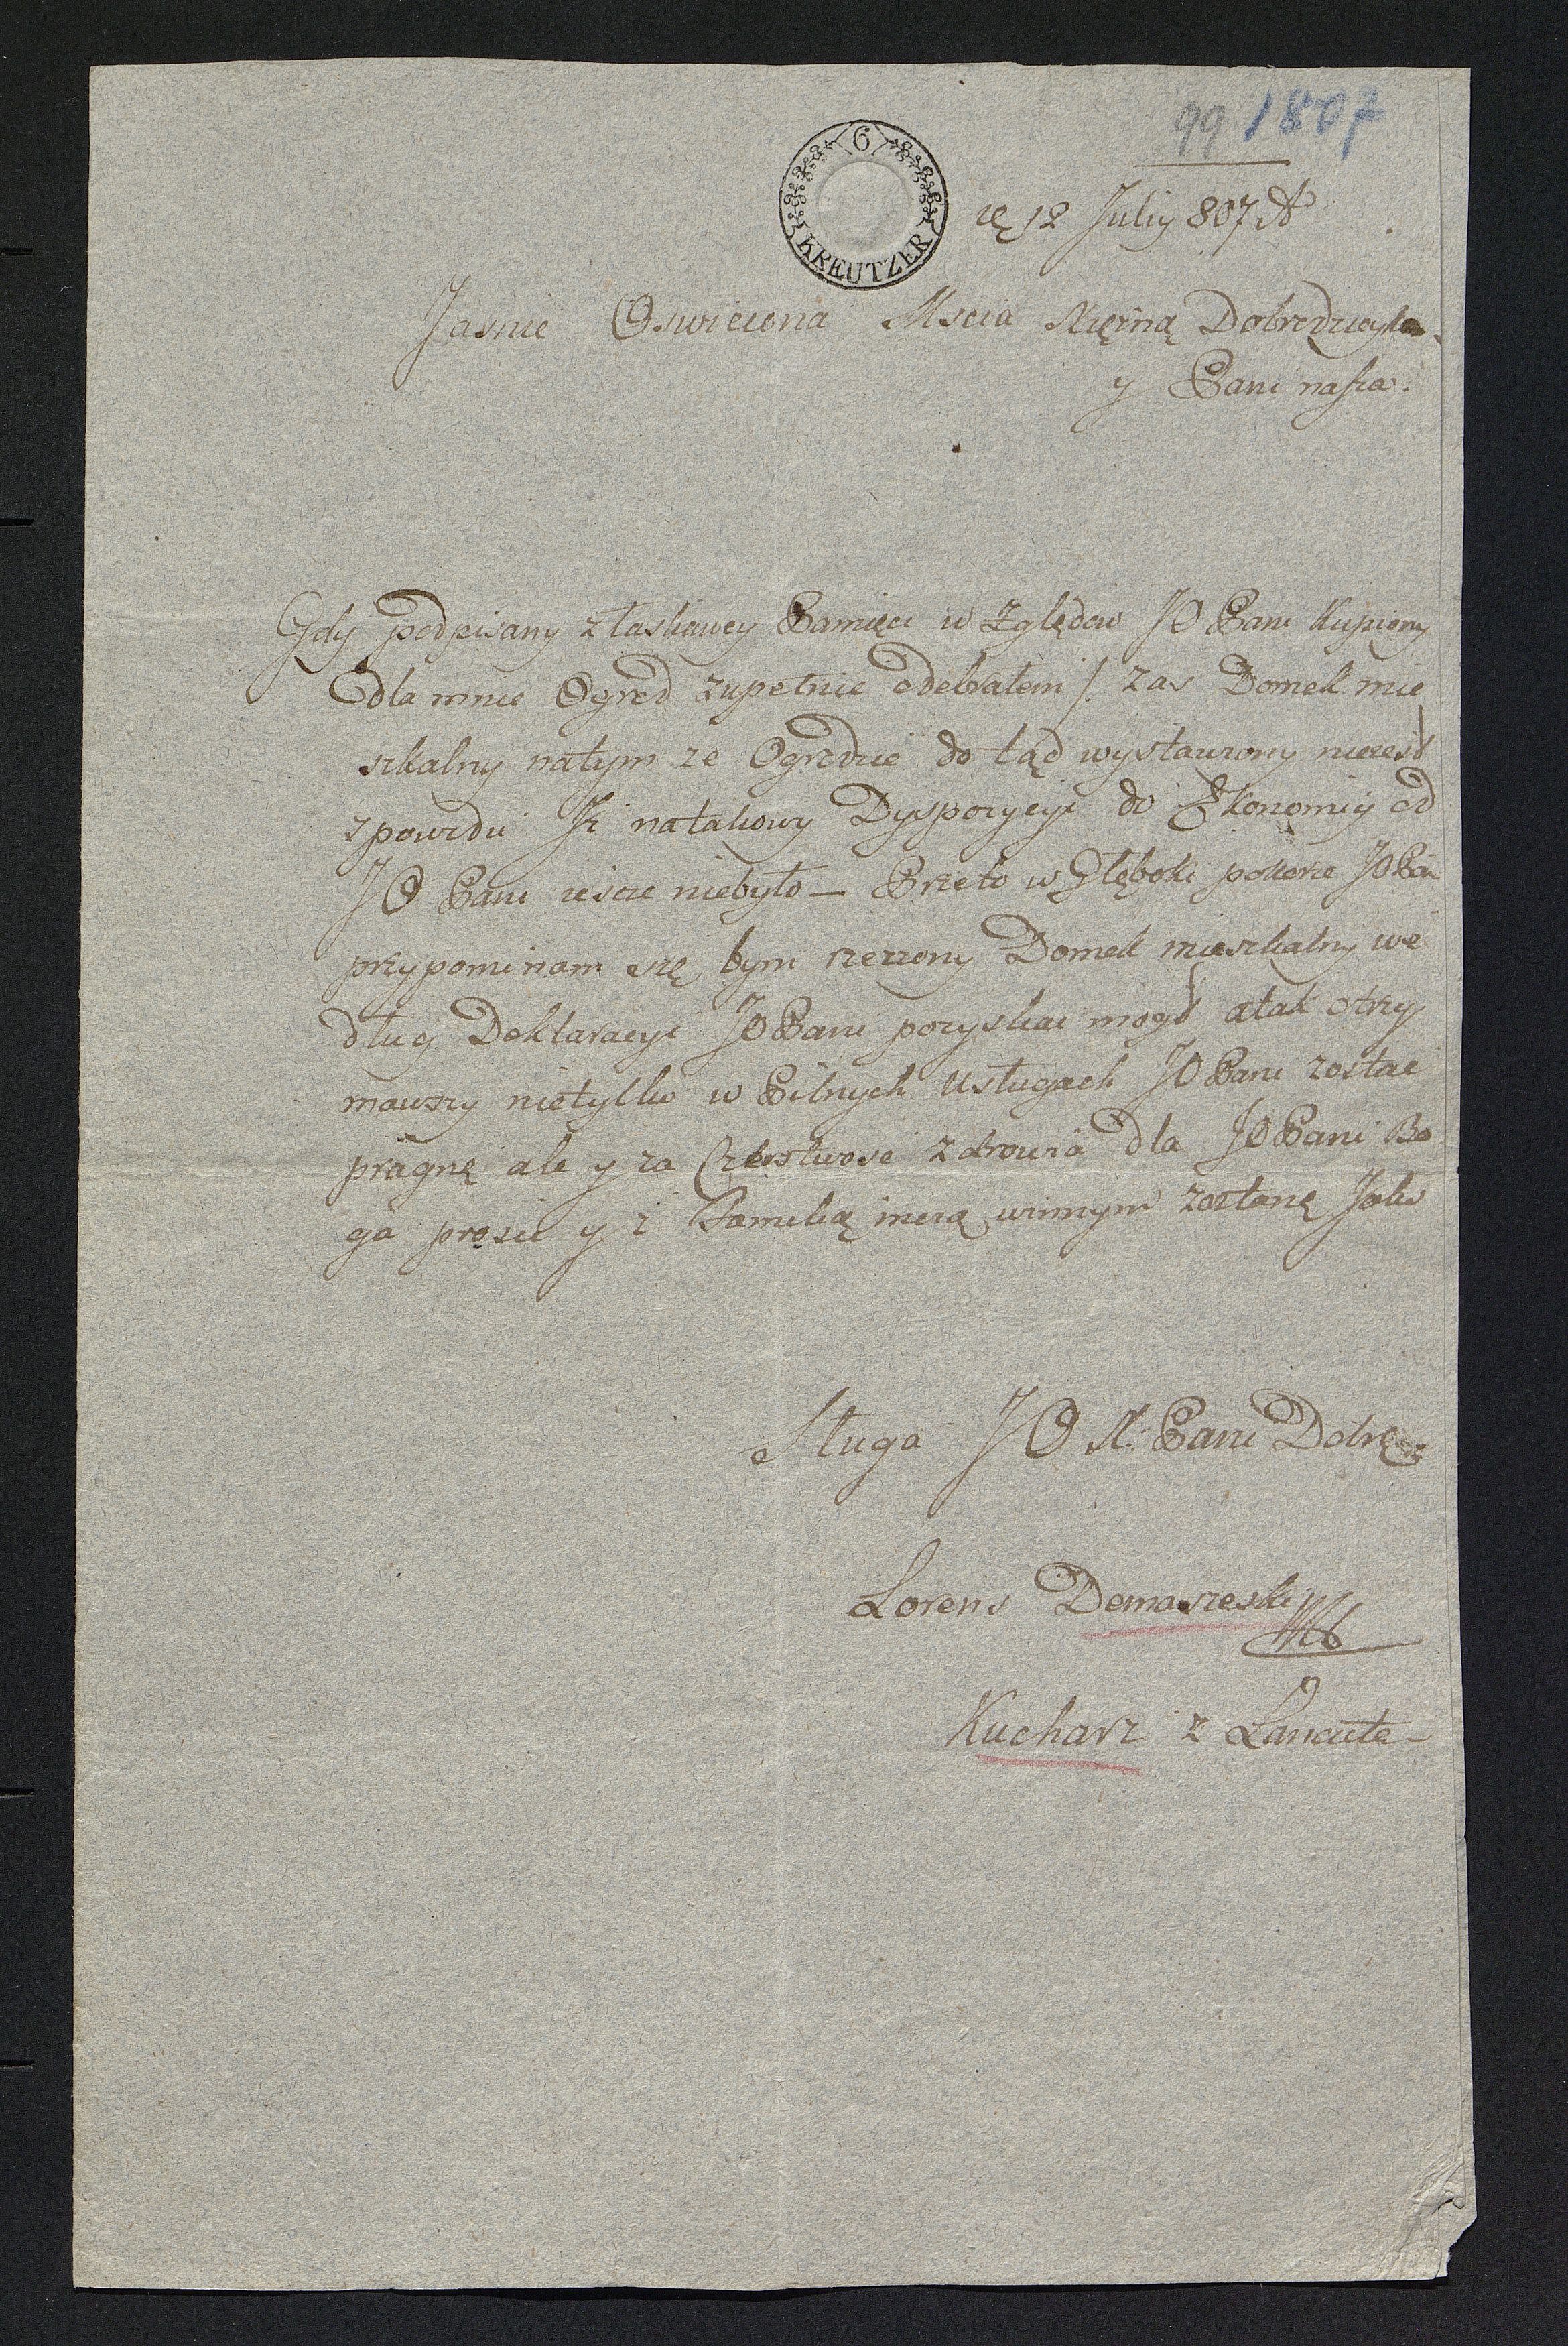 99 1807
6
KREUTZER
12 Julij 807
Jasnie Oswiecona Mscia Xięzną Dobrodzieyka
y Pani nasza.
Gdy podpisany z łaskawey Pamięci w Zględow JO Pani Kupiony
dla mnie Ogrod zupełnie odebrałem /: zas Domek mie
szkalny natym ze Ogrodzie do tąd wystawiony niezest
z powodu Iż natakowy Dyspozycyi do Ekonomij od
JO Pani iescze niebyło — Przeto w Głęboki pokorze JO Pani
przypominam się bym rzeczony Domek mieszkalny we
dług Deklaracyi JO Pani pozyskac mogł atak otrzy
mawszy nietylko w Pilnych Usługach JO Pani zostac
pragnę ale y za Czerstwosc zdrowia dla JO Pani Bo
ga prosic y z Familią moią winnym zostanę Jako
Sługa JO X: Pani Dobrę
Lorens Domaszeski
Kucharz z Lancuta